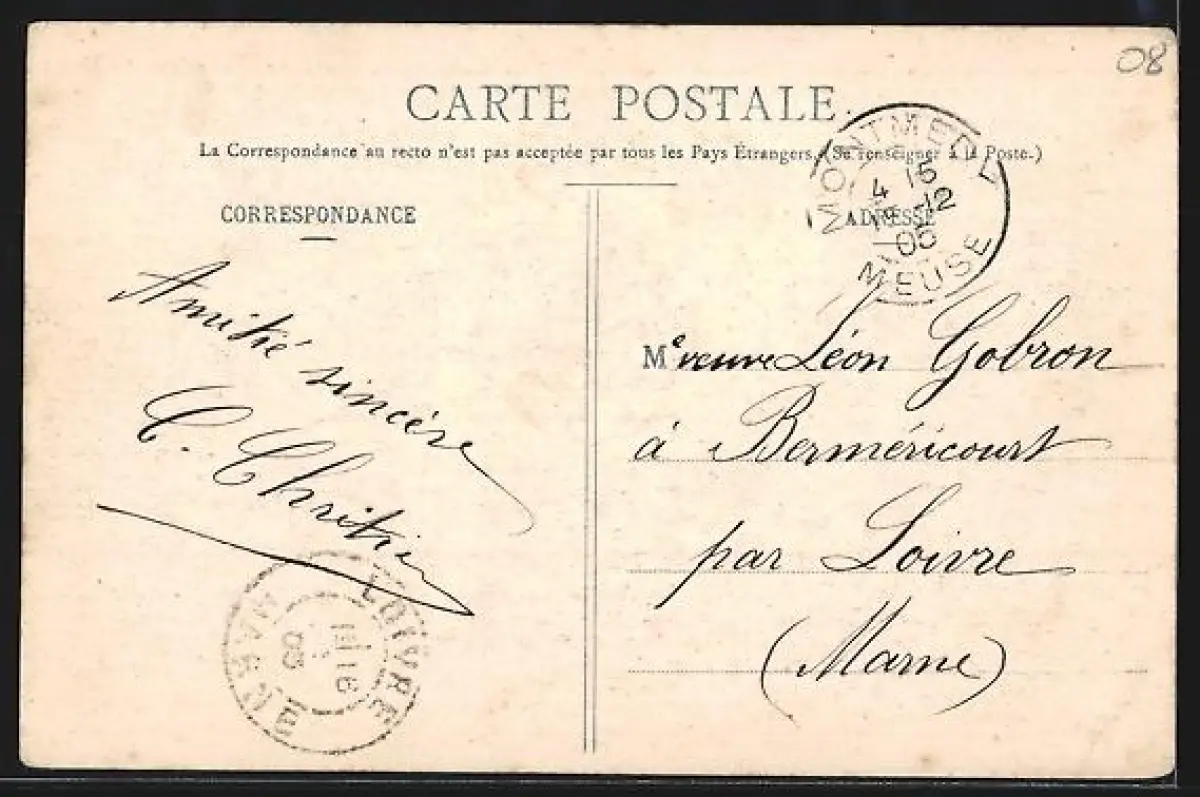 08
CARTE POSTALE.
La Correspondance au recto n'est pas acceptée par tous les Pays Étrangers. (Se renseigner à la Poste.)
CORRESPONDANCE
ADRESSE
MONTMEDY
4 15
12
05
MEUSE
Amitié sincère
C. Chrétien
Me veuve Léon Gobron
à Berméricourt
par Loivre
(Marne)
LOIVRE
16
05
MARNE